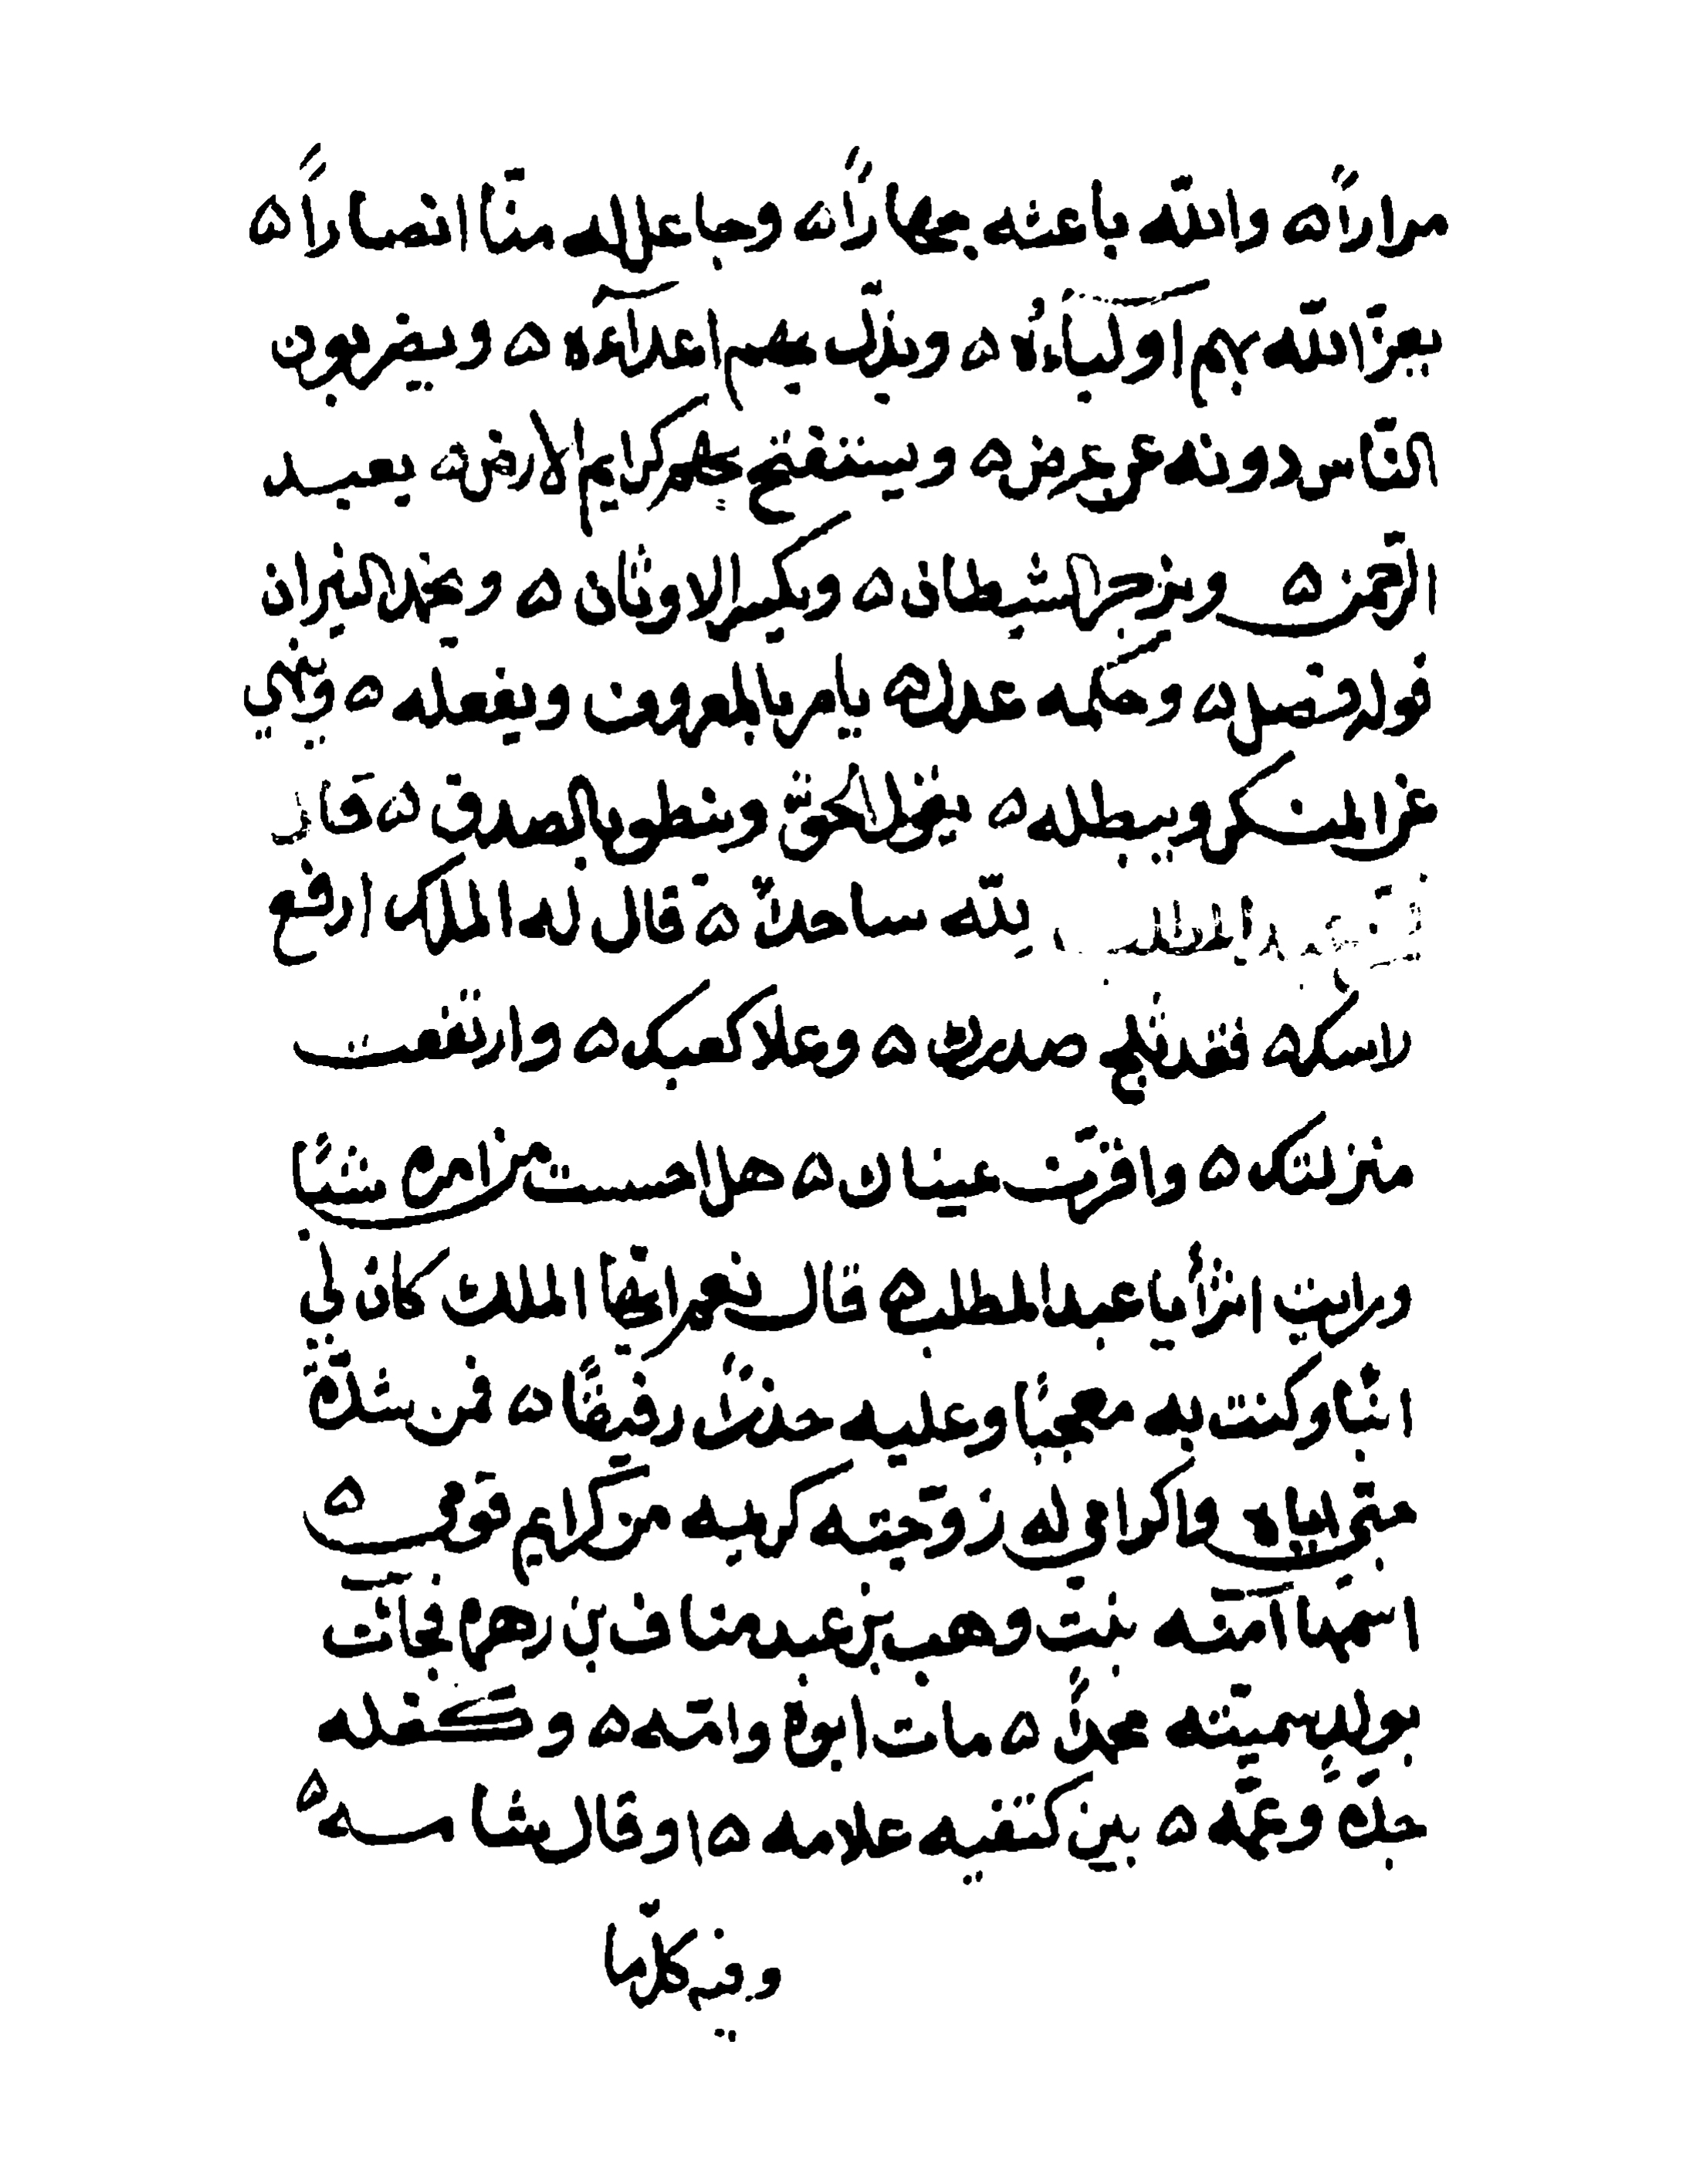 مراراً ۵ والله باعثه جهاراً ۵ وجاعل له منّا انصاراً ۵
يعزّ الله بهم اوليآءُه ۵ ويذلّ بهم اعدآءَه ۵ ويضربون
النّاس دونه عن عرض ۵ ويستفتح بهم كرايم الارض ۵ يعبد
الرّحمن ۵ ويزجر الشيطان ۵ ويكسر الاوثان ۵ ويخمد النيران
قوله فصل ۵ وحكمه عدل ۵ يامر بالمعروف ويفعله ۵ وينهي
عن المنكر ويبطله ۵ يقول الحقّ وينطق بالصدق ۵ قال
فخرّ عبد المطلب لله ساجداً ۵ قال له الملك ارفع
راسك ۵ فقد ثلج صدرك ۵ وعلا كعبك ۵ وارتفعت
منزلتك ۵ واقرّت عيناك ۵ هل احسست من امره شيئاً
ورايت اثراً يا عبد المطلب ۵ قال نعم ايّها الملك كان لي
ابناً وكنت به معجباً وعليه حذراً رفيقاً ۵ فمن شدّة
منّي اياه واكرامي له زوّجته كريمه من كرايم قومي ۵
اسمها آمنه بنت وهب بن عبد مناف بن زهره فجآت
بولدٍ سميّته محمداً ۵ مات ابوه وامّه ۵ وكفله
جدّه وعمّه ۵ بين كتفيه علامه ۵ او قال شامه ۵
وفيه كلّما